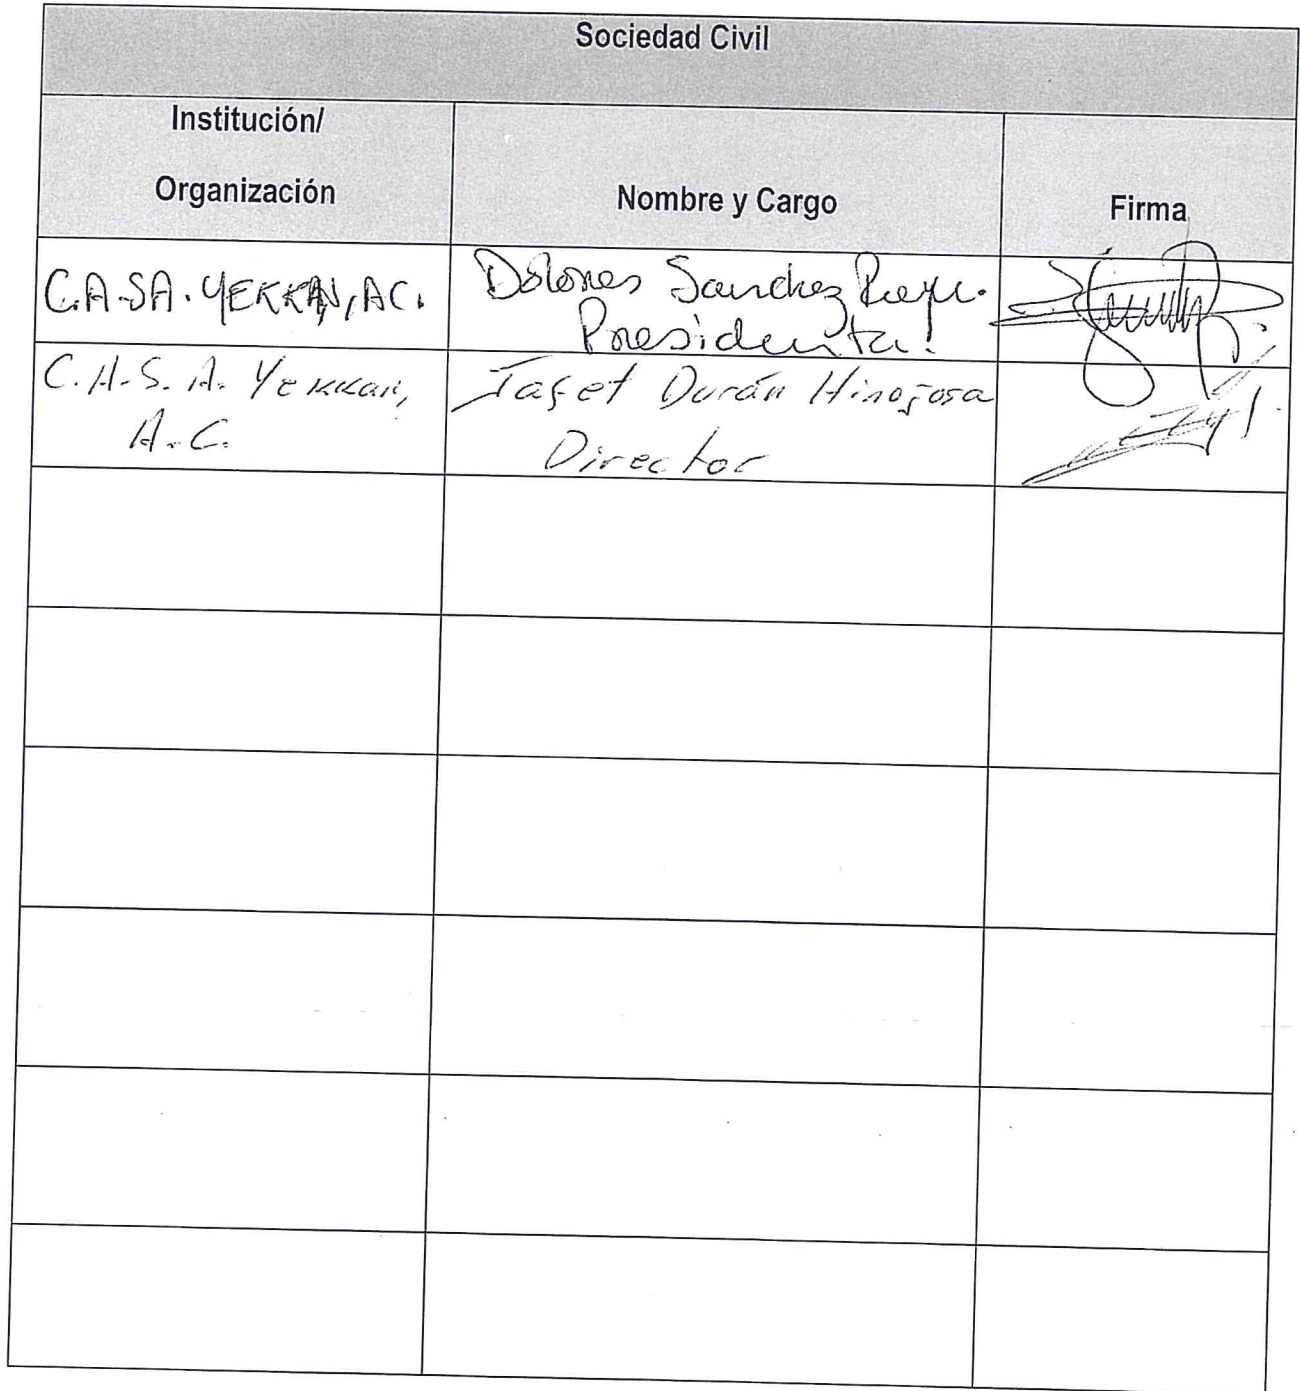 Sociedad Civil
Institución/
Organización
Nombre y Cargo
Firma
C.A.SA. YEKKAN, AC.
Dolores Sanchez
Presidenta!
C.A.S.A. Yekkan,
A.C.
Jafet Durán Hinojosa
Director